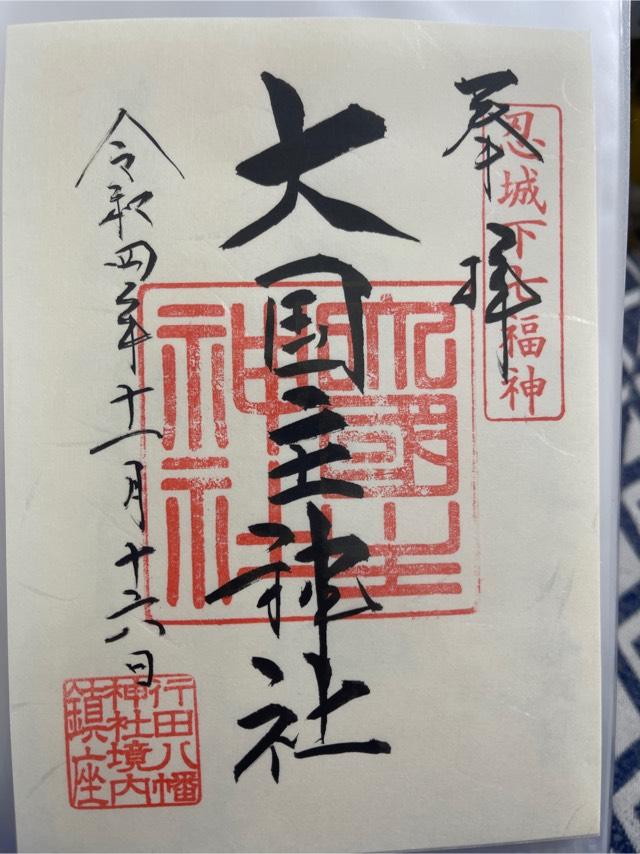 奉拝
忍城下七福神
大国主神社
大國主神社
令和四年十一月十六日
行田八幡
神社境内
鎮座